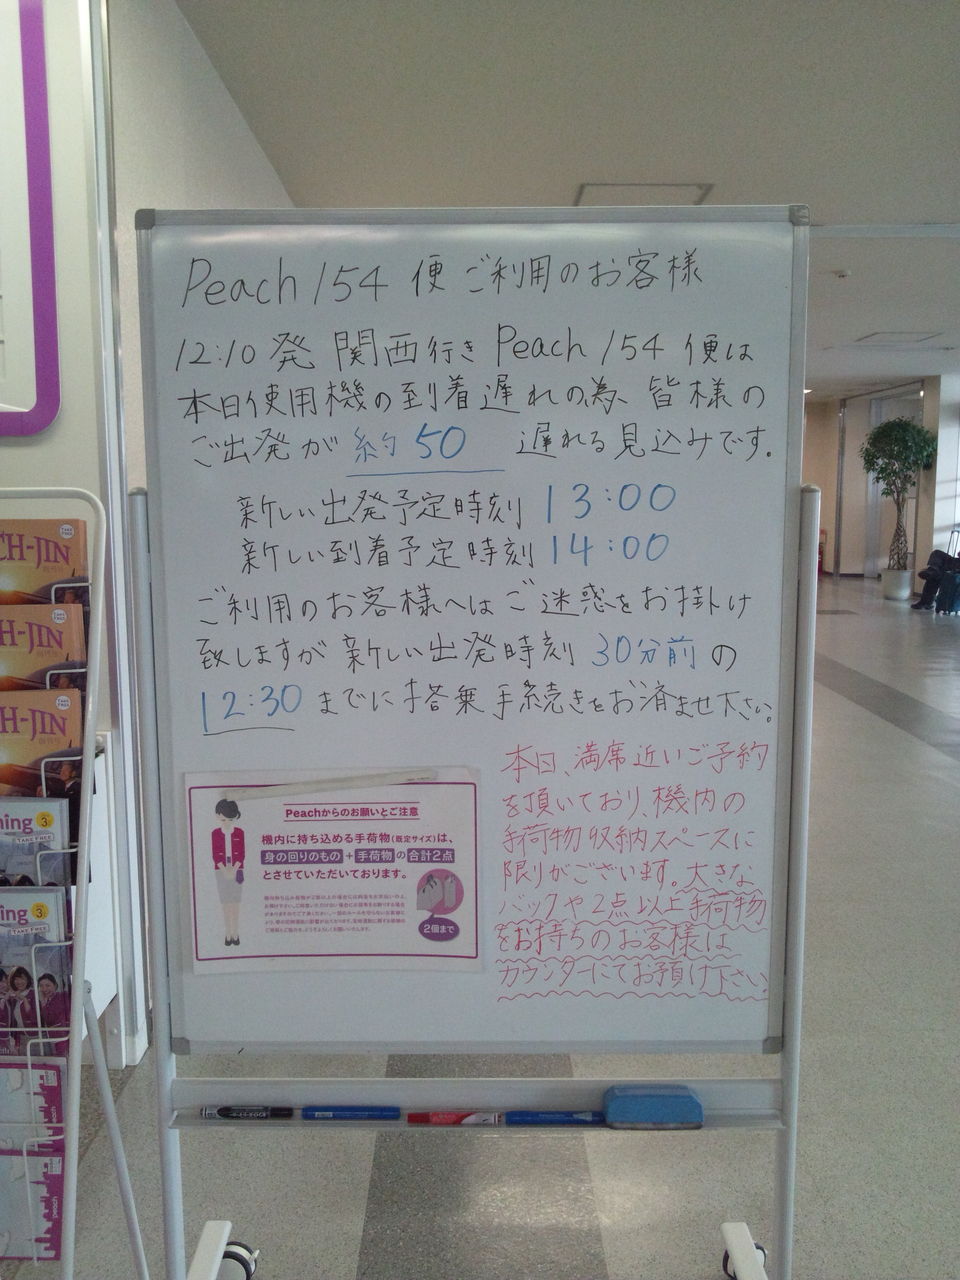 Peach 154 便 ご利用のお客様
12:10 発 関西行き Peach 154 便は
本日使用機の到着遅れの為、皆様の
ご出発が 約50 遅れる見込みです。
新しい出発予定時刻 13:00
新しい到着予定時刻 14:00
ご利用のお客様へはご迷惑をお掛け
致しますが 新しい出発時刻 30分前の
12:30 までに搭乗手続きをお済ませ下さい。
本日、満席近いご予約
を頂いており、機内の
手荷物収納スペースに
限りがございます。大きな
バックや2点以上手荷物
をお持ちのお客様は
カウンターにてお預け下さい
Peachからのお願いとご注意
機内に持ち込める手荷物(既定サイズ)は、
身の回りのもの + 手荷物 の 合計2点
とさせていただいております。
2個まで
CH-JIN
TAKE FREE
H-JIN
TAKE FREE
H-JIN
TAKE FREE
ning
3
TAKE FREE
ning
3
TAKE FREE
peach
peach